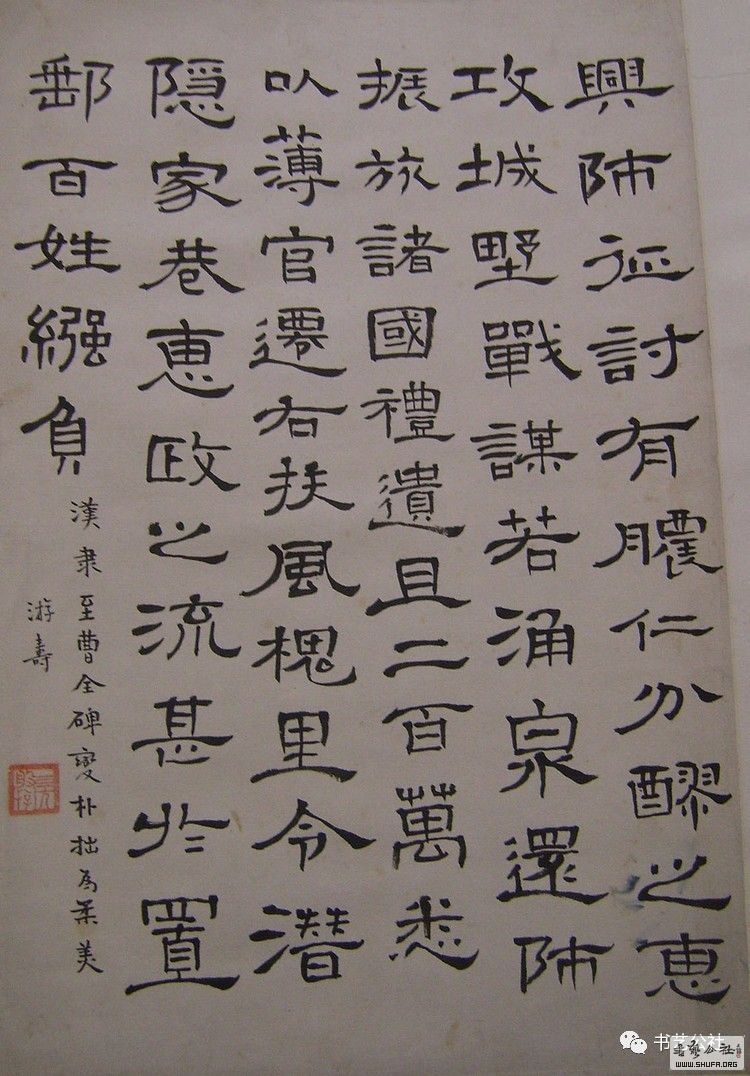 興師征討有膿仁分醪之惠
攻城墅戰謀若涌泉還師
振旅諸國禮遺且二百萬悉
以薄官遷右扶風槐里令潛
隐家巷惠政之流甚於置
郵百姓繦負
漢隶至曹全碑變朴拙為柔美
游壽
书艺公社
書藝公社
WWW.SHUFA.ORG